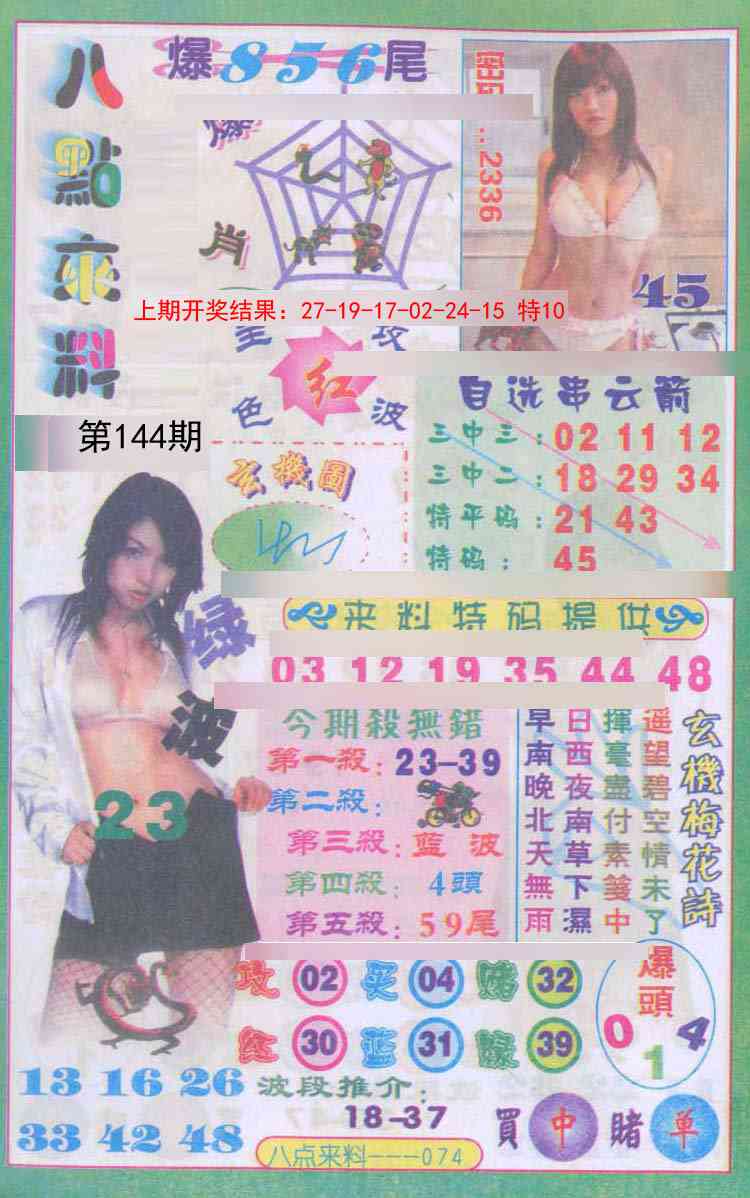 八點來料
爆856尾
2336
爆
肖
45
上期开奖结果：27-19-17-02-24-15 特10
全 攻
红
色 波
第144期
玄機圖
自选串云箭
三中三：02 11 12
三中二：18 29 34
特平码：21 43
特码：45
来料特码提供
03 12 19 35 44 48
绿波
23
今期殺無錯
第一殺：23-39
第二殺：
第三殺：蓝波
第四殺：4頭
第五殺：59尾
玄機梅花詩
遥望碧空情未了
揮毫盡付素箋中
日西夜南草下濕
早南晚北天無雨
攻 02 买 04 赌 32
红 30 蓝 31 綠 39
爆頭
0 1 4
13 16 26
33 42 48
波段推介：
18-37
買中賭单
八点来料---074